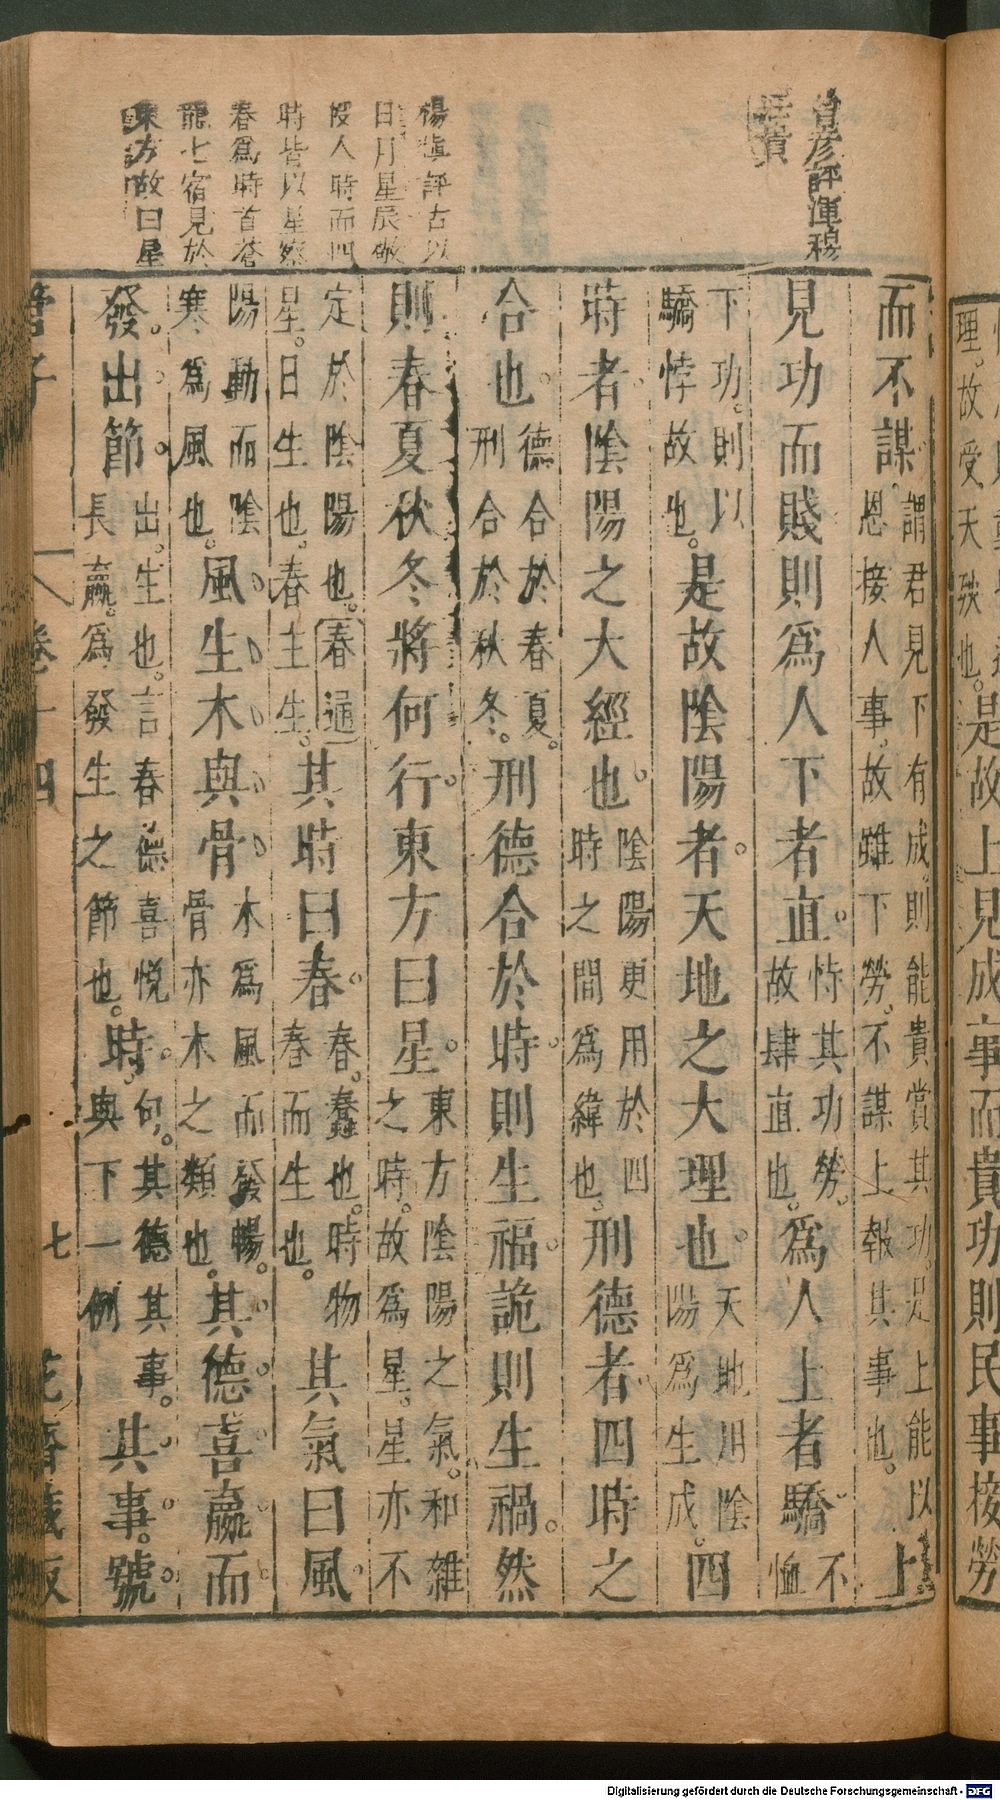 理。故受天殃也。是故上見成事而貴功則民事接勞
而不謀。謂君見下有成則能貴賞其功足上能以恩接人事故雖下勞不謀上報其事也。上
見功而賤則爲人下者直。恃其功勞。故肆直也。爲人上者驕。不恤
下功。則以驕悖故也。是故陰陽者。天地之大理也。天地用陰陽爲生成。四
時者。陰陽之大經也。陰陽更用於四時之間爲緯也。刑德者四時之
合也。德合於春夏。刑合於秋冬。刑德合於時。則生福。詭則生禍。然
則春夏秋冬將何行。東方曰星。東方陰陽之氣。和雜之時。故爲星。星亦不
定於陰陽也。春通星。日生也。春主生。其時曰春。春。蠢也。時物春而生也。其氣曰風
陽動而陰寒爲風也。風生木與骨木爲風而發暢。骨亦木之類也。其德喜嬴而
發。出節。出。生也。言春德喜悅長嬴。爲發生之節也。時。句。其德其事。與下一例其事。號
管子 卷十四 七 花齋藏板
評渾穆
楊慎評古以
日月星辰敬
授人時而四
時皆以星察
春爲時首蒼
龍七宿見於
東方故曰星
Digitalisierung gefördert durch die Deutsche Forschungsgemeinschaft - DFG